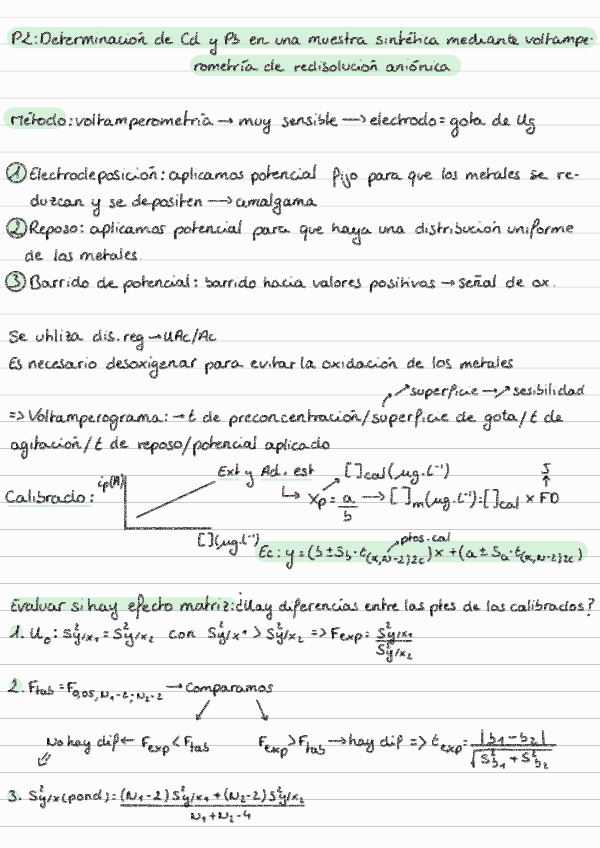 P2: Determinación de Cd y Pb en una muestra sintética mediante voltampe-
rometría de redisolución aniónica
Método: voltamperometría → muy sensible → electrodo = gota de Hg
1 Electrodeposición: aplicamos potencial fijo para que los metales se re-
duzcan y se depositen → amalgama
2 Reposo: aplicamos potencial para que haya una distribución uniforme
de los metales.
3 Barrido de potencial: barrido hacia valores positivos → señal de ox.
Se utiliza dis. reg → HAc/Ac
Es necesario desoxigenar para evitar la oxidación de los metales
↗ superficie → ↗ sesibilidad
=> Voltamperograma: → t de preconcentración/superficie de gota/t de
agitación/t de reposo/potencial aplicado
Calibrado: ip(A) [](µg.l⁻¹) Ext y Ad. est
↳ Xp = a/b → []cal(µg.l⁻¹) → []m(µg.l⁻¹) = []cal × FD ↑ 5
Ec: y = (b ± Sb · t(α,N-2)2c)x + (a ± Sa · t(α,N-2)2c) ptos. cal
Evaluar si hay efecto matriz: ¿Hay diferencias entre las ptes de los calibrados?
1. H₀: S²y/x₁ = S²y/x₂ con S²y/x¹ > S²y/x₂ => Fexp = S²y/x₁ / S²y/x₂
2. Ftab = F0,05, N₁-2; N₂-2 → Comparamos
No hay dif ← Fexp < Ftab Fexp > Ftab → hay dif => texp = |b₁ - b₂| / √(S²b₁ + S²b₂)
3. S²y/x(pond) = (N₁-2) S²y/x₁ + (N₂-2) S²y/x₂ / N₁ + N₂ - 4